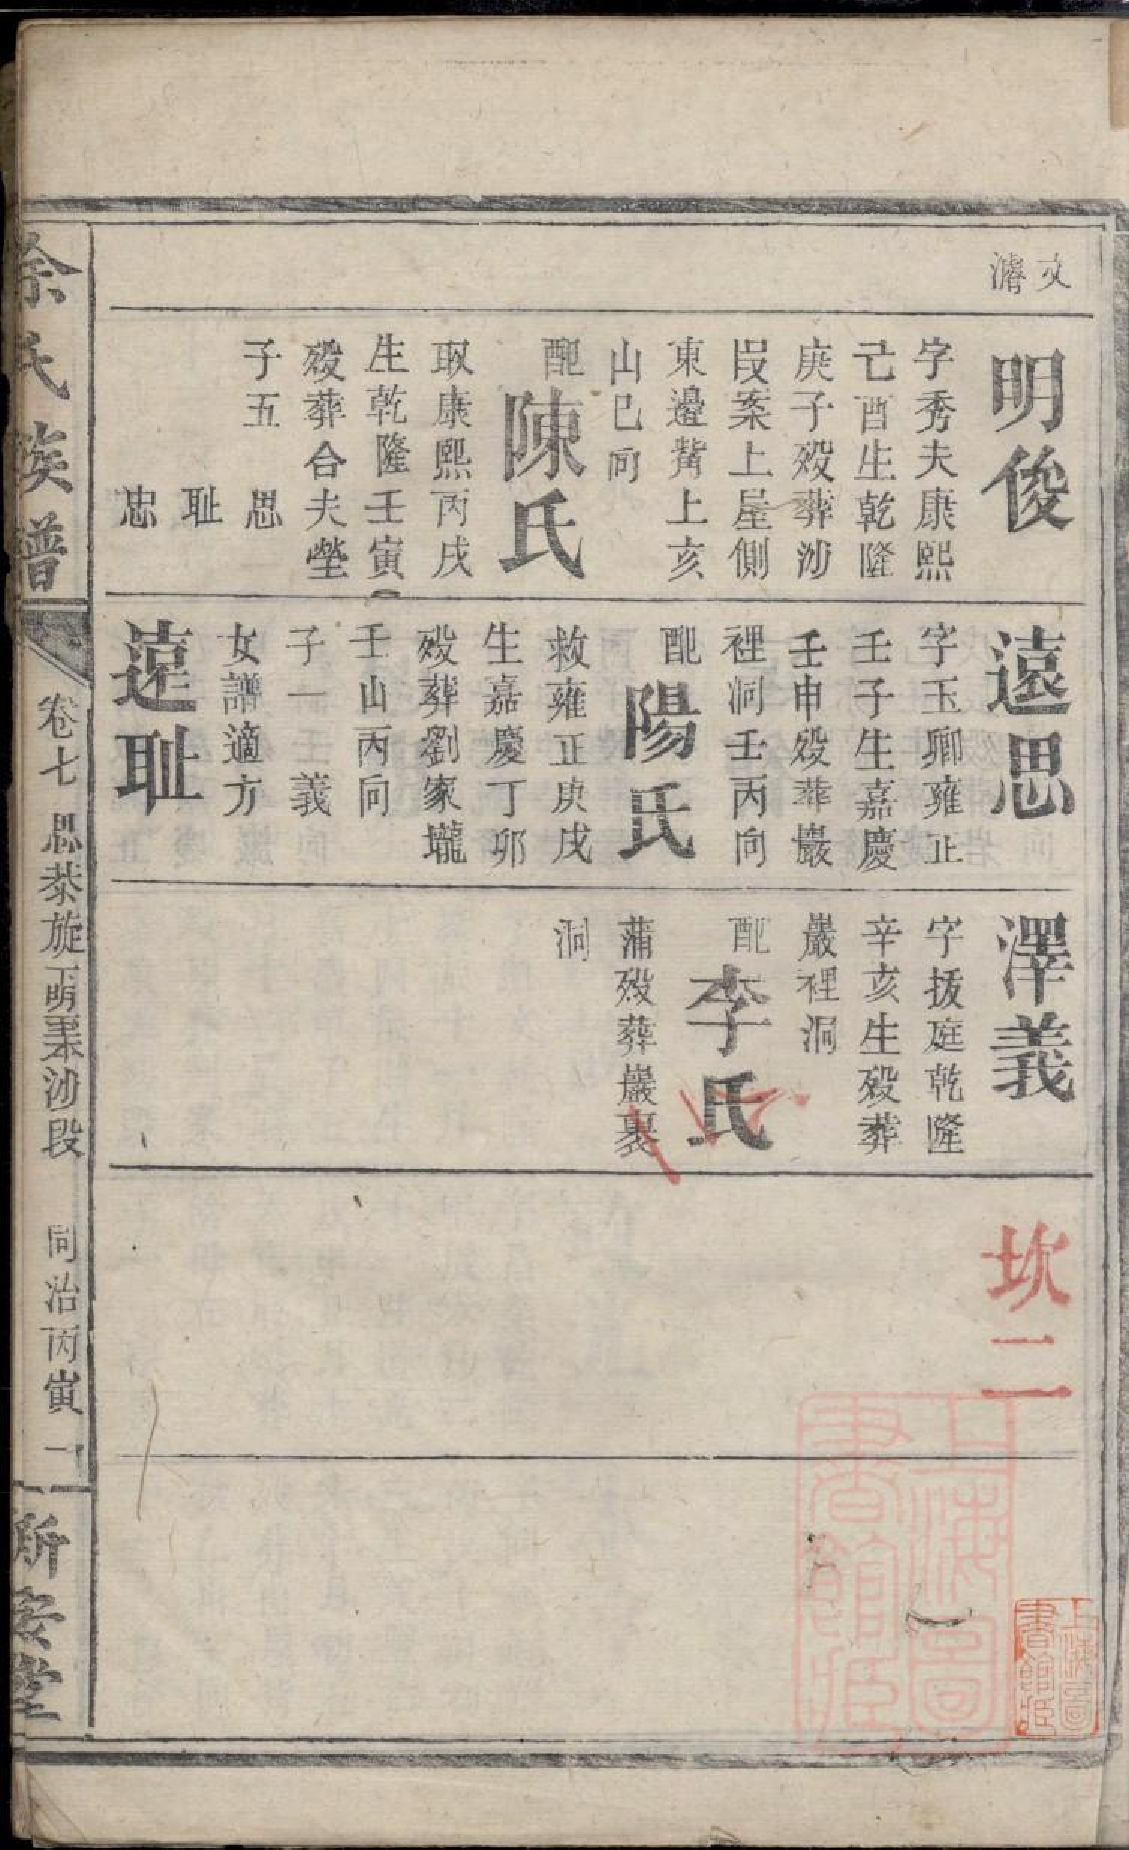 文
濬
明俊
字秀夫康熙
己酉生乾隆
庚子歿葬沙
段案上屋側
東邊背上亥
山巳向
配
陳氏
取康熙丙戌
生乾隆壬寅
歿葬合夫塋
子五
思
耻
忠
遠思
字玉卿雍正
壬子生嘉慶
壬申歿葬巖
裡洞壬丙向
配
陽氏
救雍正庚戌
生嘉慶丁卯
歿葬劉家壠
壬山丙向
子一 義
女譜適方
遠耻
澤義
字拔庭乾隆
辛亥生歿葬
巖裡洞
配
李氏
蒲歿葬巖裏
洞
坎二
上海圖書館藏
上海圖書館藏
徐氏族譜
卷七 思恭旋 明 沙段
同治丙寅 一
斯安堂